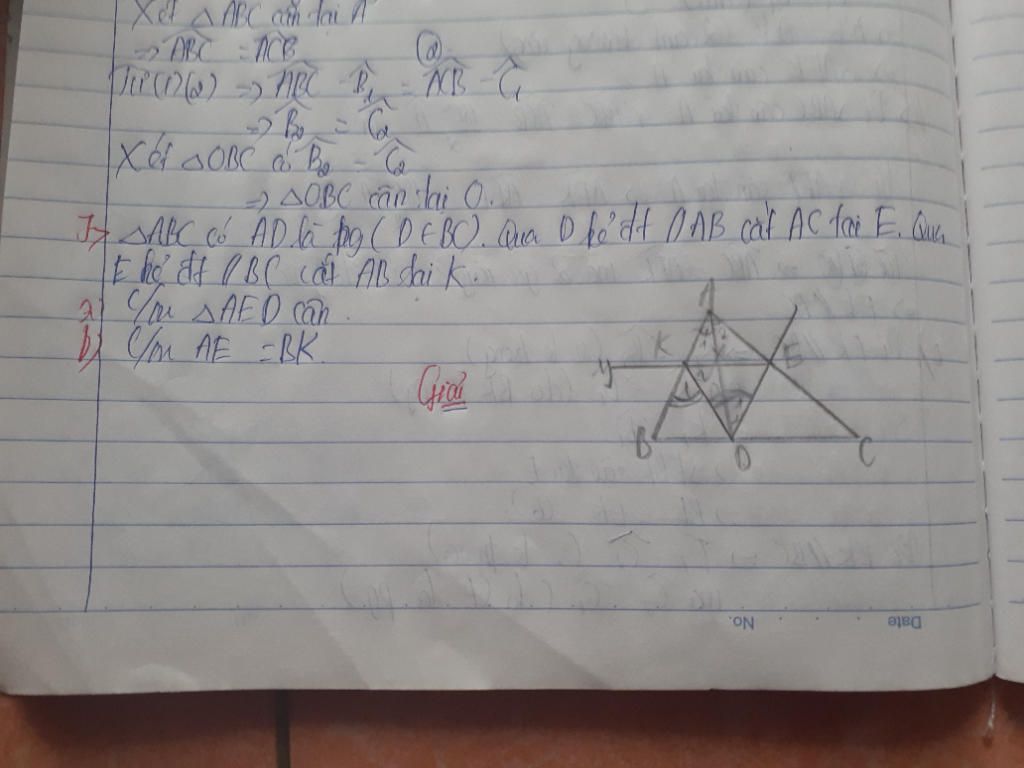 Xét △ABC cân tại A
=> ABC = ACB (2)
Từ (1)(2) => ABC - B₁ = ACB - C₁
=> B₂ = C₂
Xét △OBC có B₂ = C₂
=> △OBC cân tại O.
△ABC có AD là pg (D∈BC). Qua D kẻ đt // AB cắt AC tại E. Qua
E kẻ đt // BC cắt AB tại K.
a) C/m △AED cân.
b) C/m AE = BK.
Giải
A
K
E
y
B
D
C
Date No.